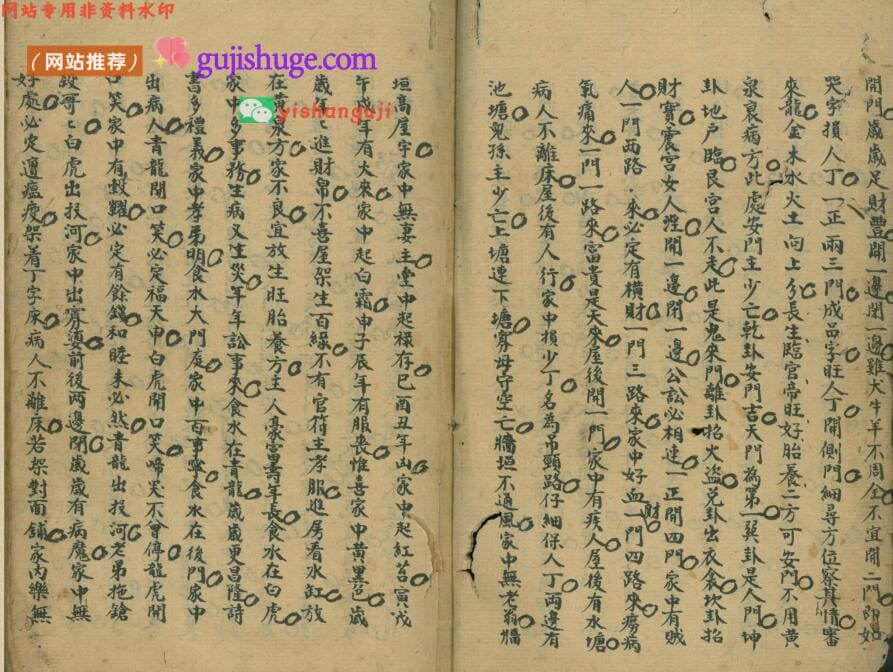 网站专用非资料水印
（网站推荐）
gujishuge.com
yishanguji
開門歲歲足財豐開一邊閉一邊雞犬牛羊不周全不宜開二門即如
哭字損人丁一正兩三門成品字旺人丁開側門細尋方位察其情審
來龍金木水火土向上分長生臨官帝旺好胎養二方可安門不用黃
泉衰病方此處安門主少亡乾卦安門吉天門為第一巽卦是人門坤
卦地戶臨艮宮人不走此是鬼來門離卦招火盜兌卦出衣食坎卦招
財寶震宮女人淫開一邊閉一邊公訟必相連一正開四門家中有賊
人一門西路來必定有橫財一門三路來家中好血財一門四路來癆病
氣痛來一門一路來富貴是天來屋後開一門家中有疾人屋後有水塘
病人不離床屋後有人行家中損少丁名為吊頸路仔細保人丁兩邊有
池塘兒孫主少亡上塘連下塘寡母守空亡牆垣不通風家中無老翁牆
垣高屋宇家中無妻主堂中起樣存巳酉丑年山家中起紅苔寅戌
午戌年有大來家中起白霜申子辰年有服喪惟喜家中黃黑色歲
歲年年進財帛不喜屋架生百線不有官符主孝服逛房看水缸放
在黃泉方家不良宜放生旺胎養方主人豪富壽年長食水在白虎
家中多事務生病又生災年年訟事來食水在青龍歲歲更昌隆詩
書多禮義家中孝弟明食水大門度家中百事寧食水在後門家中
出病人青龍開口笑必定福天申白虎開口笑啼哭不曾停龍虎開
口笑家中有穀糶必定有餘錢和睦未必然青龍出投河老弟拖鎗
殺哥哥白虎出投河家中出寡婆前後兩邊閉歲歲有病魔家中無
好處必定遭瘟疫架着丁字床病人不離床若架對面鋪家內樂無